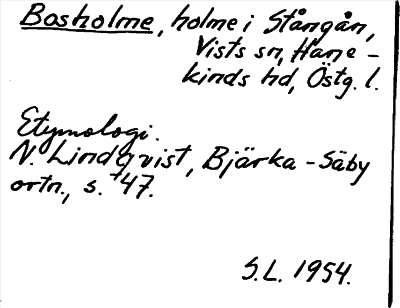 Bosholme, holme i Stångån,
Vists sn, Hane-
kinds hd, Östg. l.
Etymologi.
N. Lindqvist, Bjärka-Säby
ortn., s. 47.
S.L. 1954.